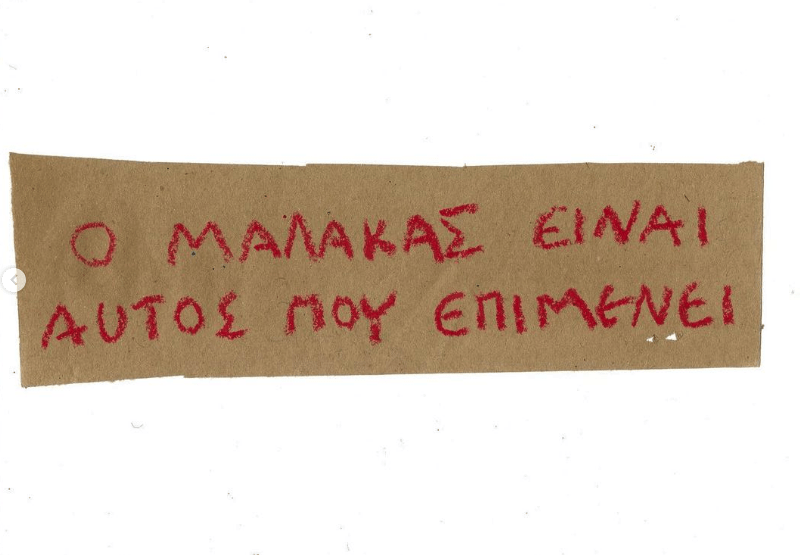 Ο ΜΑΛΑΚΑΣ ΕΙΝΑΙ
ΑΥΤΟΣ ΠΟΥ ΕΠΙΜΕΝΕΙ